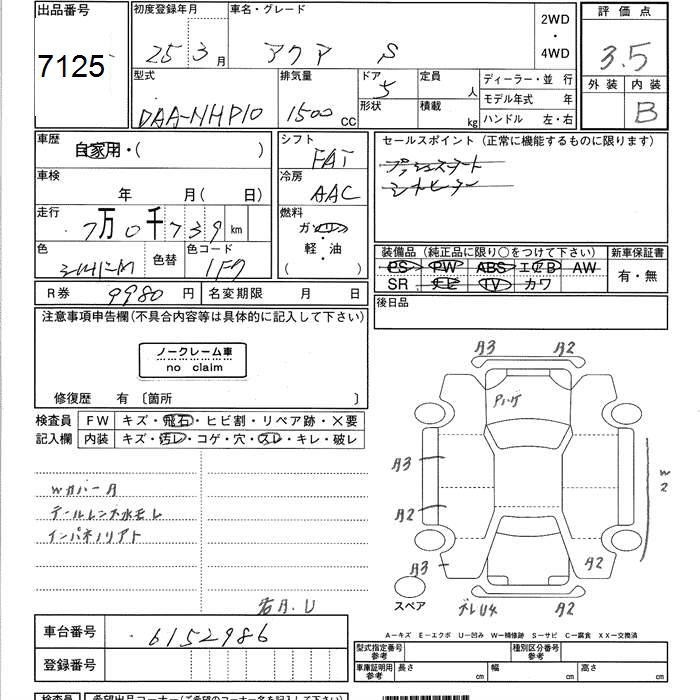 出品番号 初度登録年月 車名・グレード 評価点
7125 25年3月 アクア S 2WD・4WD 3.5
型式 排気量 ドア 定員 人 ディーラー・並 行 外装 内装
DAA-NHP10 1500cc 5 形状 積載 kg モデル年式 年 B
ハンドル 左・右
車歴 自家用・( ) シフト FAT セールスポイント (正常に機能するものに限ります)
プッシュスタート
シートヒーター
車検 年 月( 日) 冷房 AAC
走行 7万0千739km 燃料 ガソリン・軽・油( )
色 シルバーM 色替 色コード 1F7
装備品(純正品に限り○をつけて下さい) 新車保証書
PS PW ABS エアB AW 有・無
SR ナビ TV カワ
R券 9980円 名変期限 月 日 後日品
注意事項申告欄(不具合内容等は具体的に記入して下さい)
ノークレーム車
no claim
修復歴 有 〔箇所 〕
検査員 FW キズ・飛石・ヒビ割・リペア跡・×要
記入欄 内装 キズ・汚レ・コゲ・穴・スレ・キレ・破レ
A3 A2
Pハゲ
A3
W2
Wカバー A
A2
テールレンズ水モレ
A3 A2
スペア A2
若A.U
A-キズ E-エクボ U-凹み W-補修跡 S-サビ C-腐食 XX-交換済
車台番号 6152986
型式指定番号 参考 種別区分番号 参考
登録番号 車庫証明用 参考 長さ cm 幅 cm 高さ cm
検査員 希望出品コーナー(ご希望のコーナー名を記入下さい)